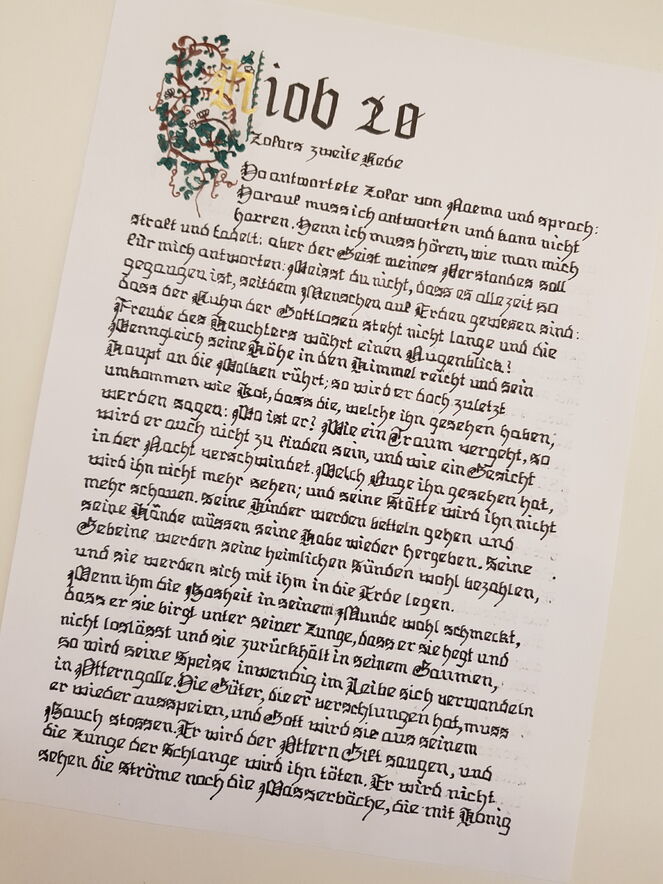 Hiob 20
Zofars zweite Rede
Da antwortete Zofar von Naema und sprach:
Darauf muss ich antworten und kann nicht
harren. Denn ich muss hören, wie man mich
straft und tadelt; aber der Geist meines Verstandes soll
für mich antworten: Weisst du nicht, dass es alle zeit so
gegangen ist, seitdem Menschen auf Erden gewesen sind:
dass der Ruhm der Gottlosen steht nicht lange und die
Freude des Heuchlers währt einen Augenblick?
Wenngleich seine Höhe in den Himmel reicht und sein
Haupt an die Wolken rührt; so wird er doch zuletzt
umkommen wie Kot, dass die, welche ihn gesehen haben,
werden sagen: Wo ist er? Wie ein Traum vergeht, so
wird er auch nicht zu finden sein, und wie ein Gesicht
in der Nacht verschwindet. Welch Auge ihn gesehen hat,
wird ihn nicht mehr sehen; und seine Stätte wird ihn nicht
mehr schauen. Seine Kinder werden betteln gehen und
seine Hände müssen seine Habe wieder hergeben. Seine
Gebeine werden seine heimlichen Sünden wohl bezahlen,
und sie werden sich mit ihm in die Erde legen.
Wenn ihm die Bosheit in seinem Munde wohl schmeckt,
dass er sie birgt unter seiner Zunge, dass er sie hegt und
nicht loslässt und sie zurückhält in seinem Gaumen,
so wird seine Speise inwendig im Leibe sich verwandeln
in Otterngalle. Die Güter, die er verschlungen hat, muss
er wieder ausspeien, und Gott wird sie aus seinem
Bauch stossen. Er wird der Ottern Gift saugen, und
die Zunge der Schlange wird ihn töten. Er wird nicht
sehen die Ströme noch die Wasserbäche, die mit Honig